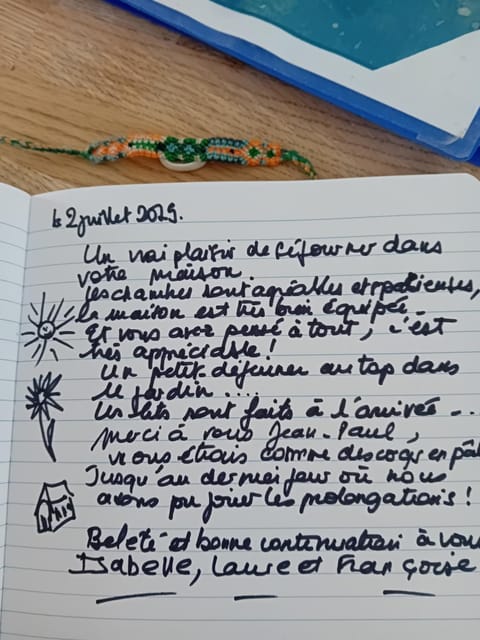 le 2 juillet 2025.
Un vrai plaisir de séjourner dans
votre maison.
les chambres sont agréables et spatieuses,
la maison est très bien équipée.
Et vous avez pensé à tout, c'est
très appréciable!
Un petit-déjeuner au top dans
le jardin ....
Les lits sont faits à l'arrivée ..
merci à vous Jean-Paul,
nous étions comme des coqs en pât
Jusqu'au dernier jour où nous
avons pu jouer les prolongations!
Bel été et bonne continuation à vou
Isabelle, Laure et Françoise